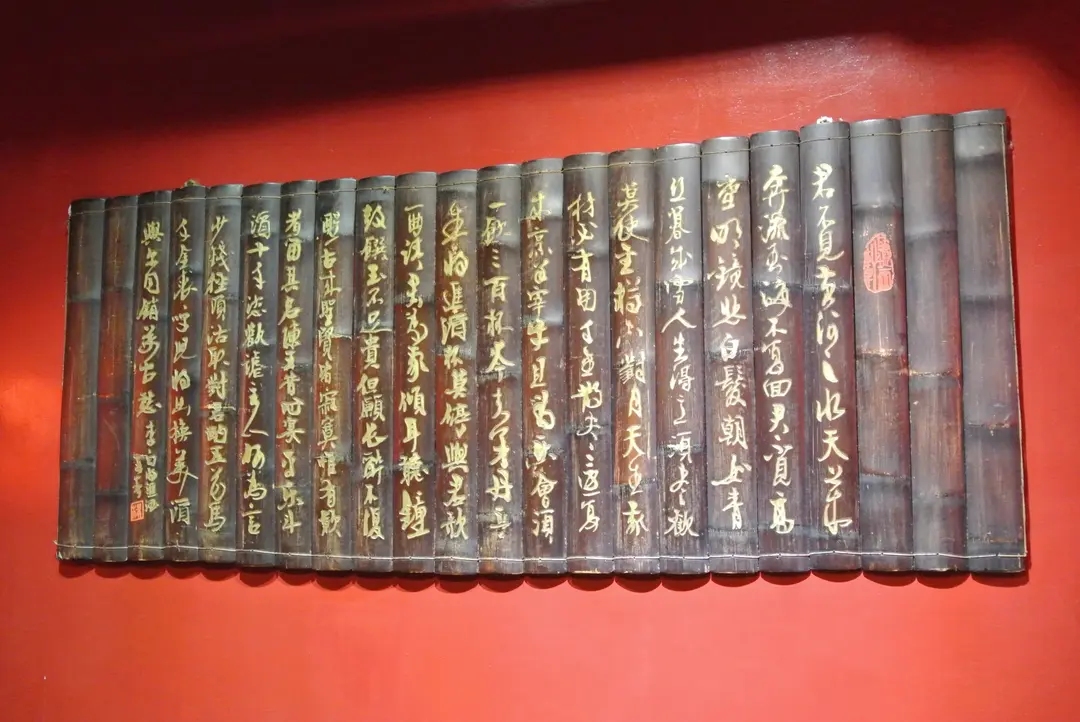 君不見黃河之水天上來
奔流到海不復回君不見高
堂明鏡悲白髮朝如青
絲暮成雪人生得意須盡歡
莫使金樽空對月天生我
材必有用千金散盡還復
來烹羊宰牛且為樂會須
一飲三百杯岑夫子丹丘
生將進酒杯莫停與君歌
一曲請君為我傾耳聽鐘
鼓饌玉不足貴但願長醉不復
醒古來聖賢皆寂寞惟有飲
者留其名陳王昔時宴平樂斗
酒十千恣歡謔主人何為言
少錢徑須沽取對君酌五花馬
千金裘呼兒將出換美酒
與爾同銷萬古愁李白將進酒